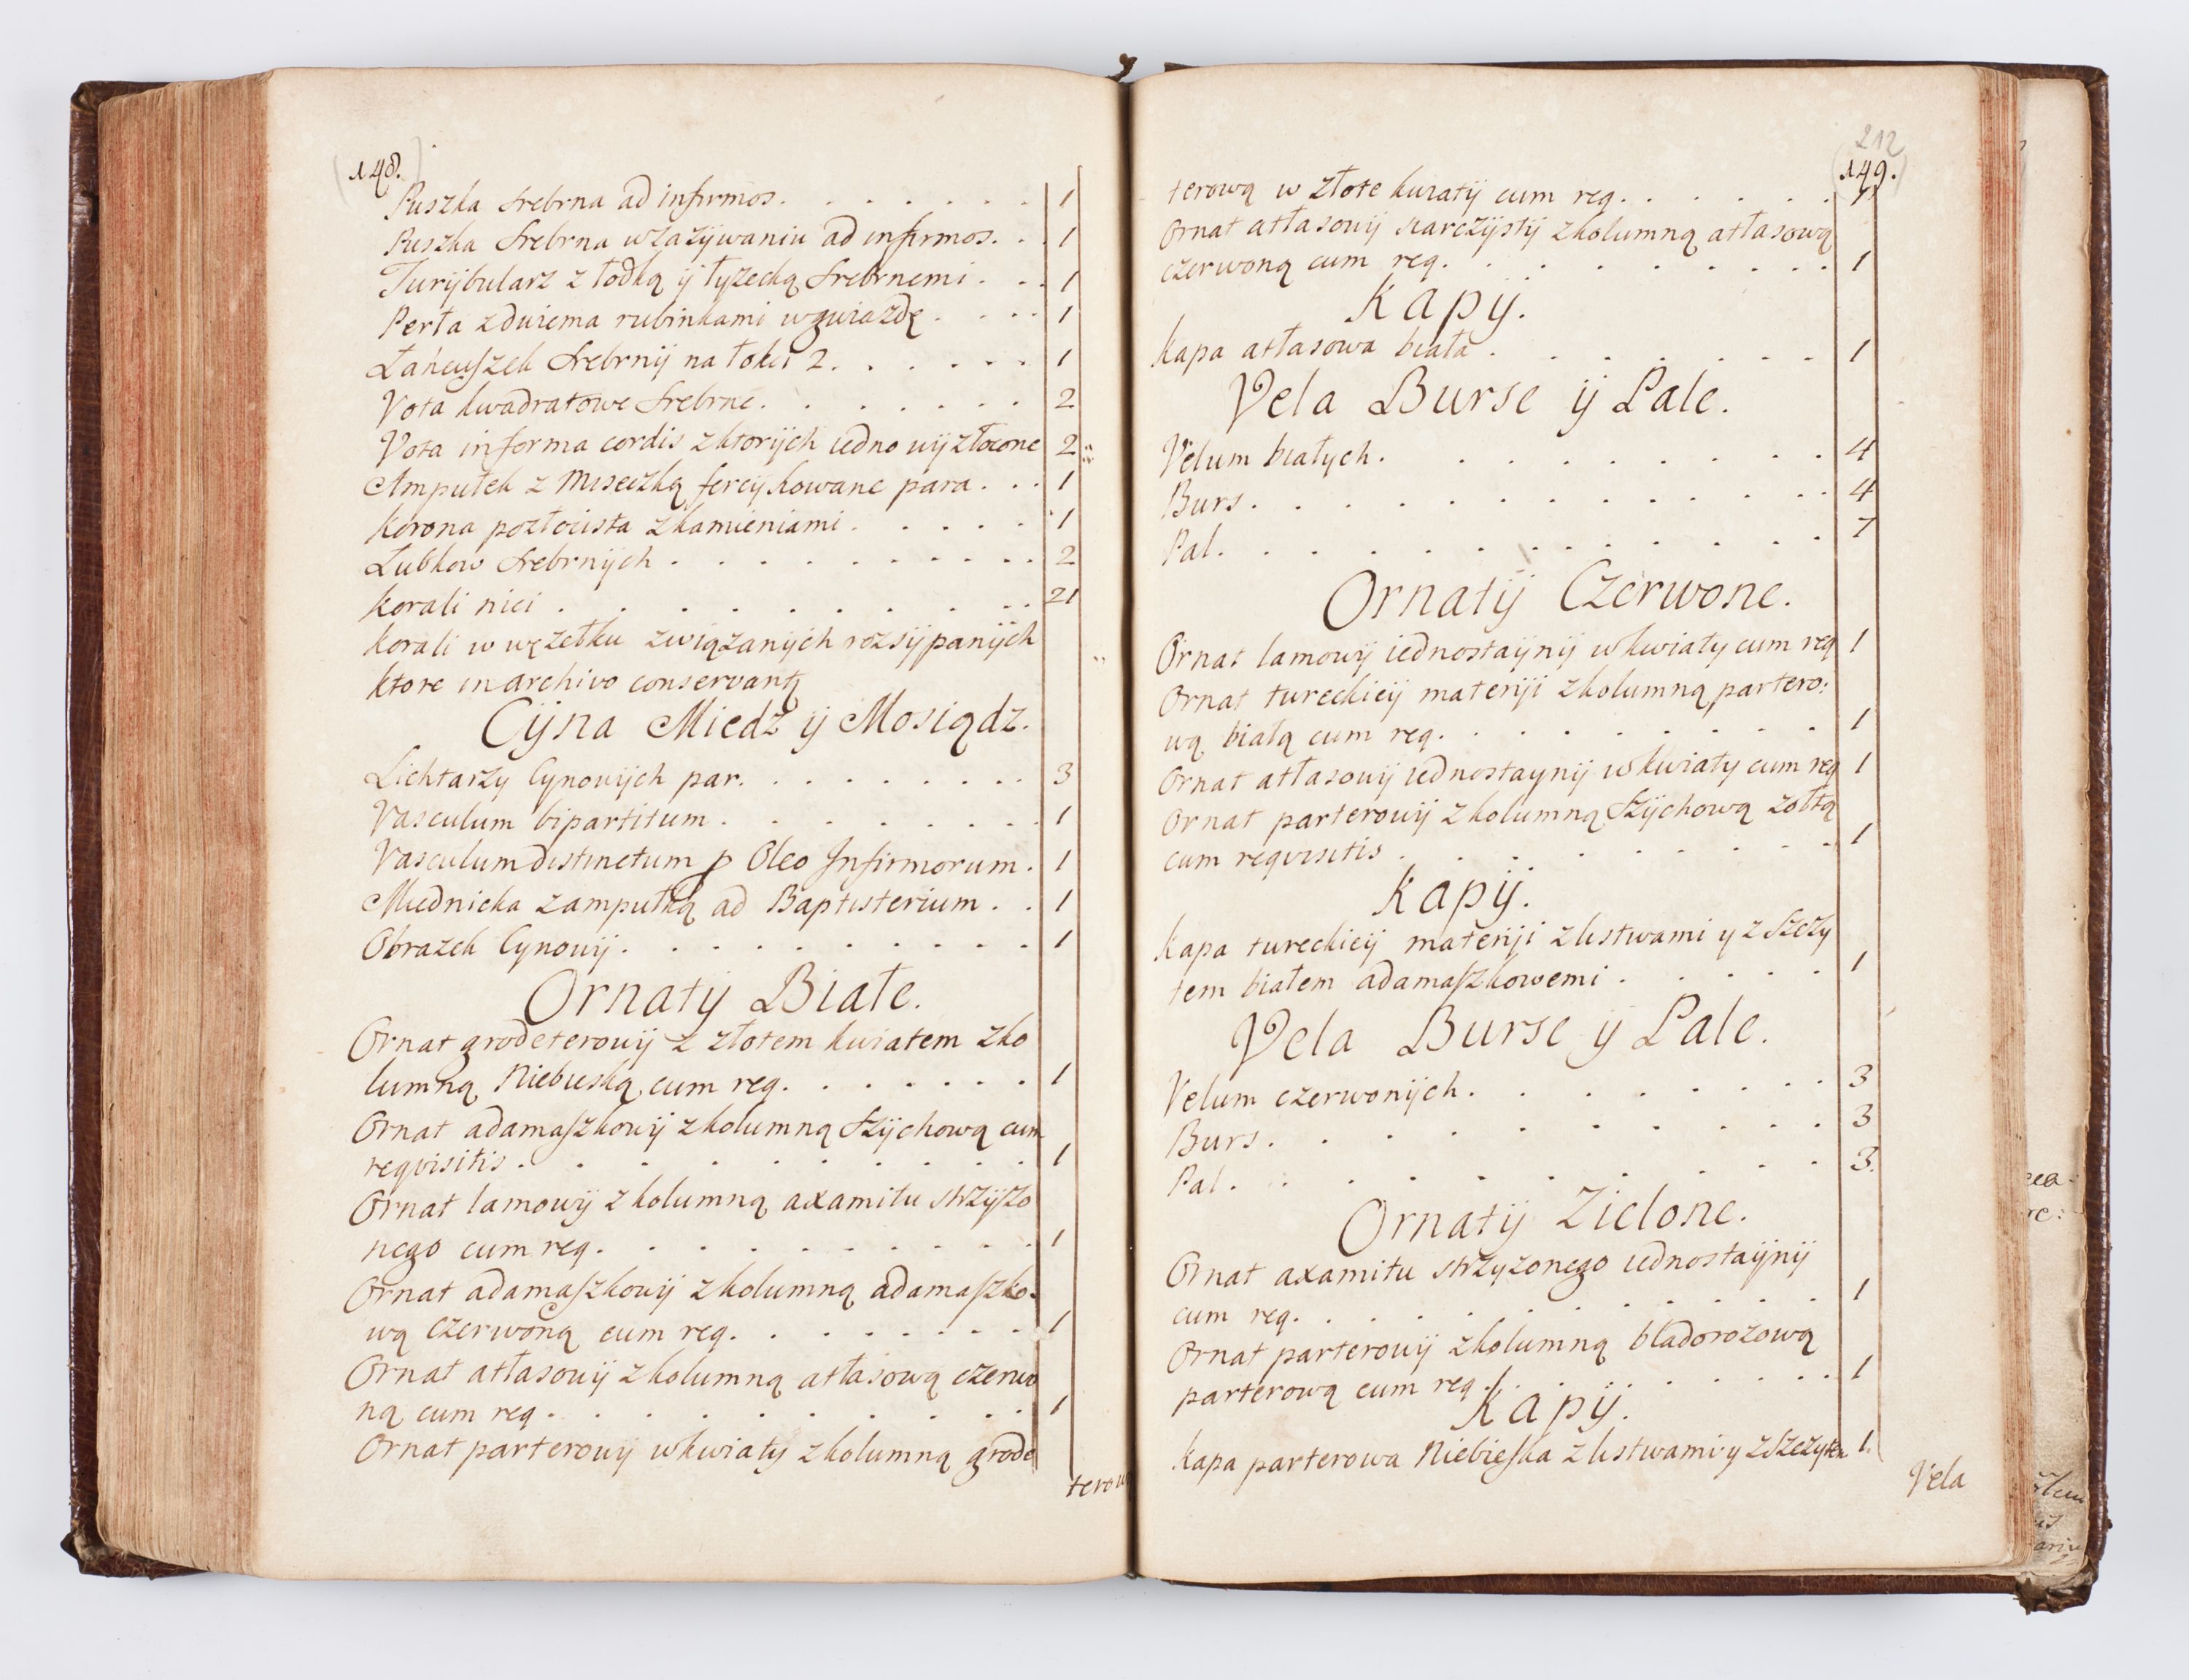 148.
Puszka srebrna ad infirmos. . . . . . . 1
Puszka srebrna w zazÿwaniu ad infirmos. . . 1
Turÿbularz z łodką ÿ łyzecką srebrnemi . . . 1
Perła z dwiema rubinkami w gwiazdę . . . . 1
Łańcuszek srebrnÿ na łokci 2. . . . . . 1
Vota kwadratowe srebrne. . . . . . . 2
Vota in forma cordis z ktorÿch iedno wÿzłocone 2
Ampułek z Miseczką fercÿkowane para . . . 1
Korona pozłocista z kamieniami . . . . . 1
Łubkow srebrnÿch . . . . . . . . . 2
Korali nici . . . . . . . . . . 21
Korali w węzełku związanÿch rozsÿpanÿch
ktore in archivo conservantꝫ
Cÿna Miedz ÿ Mosiądz.
Lichtarzy Cynowÿch par. . . . . . . . . 3
Vasculum bipartitum . . . . . . . . 1
Vasculum distinctum p Oleo Infirmorum . 1
Miednicka z ampułką ad Baptisterium . . 1
Obrazek Cynowÿ . . . . . . . . . 1
Ornatÿ Białe.
Ornat grodeterowÿ z złotem kwiatem z ko
lumną Niebieską cum req. . . . . . . 1
Ornat adamaszkowÿ z kolumną Szÿchową cum
reqvisitis . . . . . . . . . . . 1
Ornat lamowÿ z kolumną axamitu strzÿzo
nego cum req. . . . . . . . . . 1
Ornat adamaszkowÿ z kolumną adamaszko:
wą czerwoną cum req. . . . . . . . 1
Ornat atłasowÿ z kolumną atłasową czerwo
ną cum req . . . . . . . . . . 1
Ornat parterowÿ w kwiaty z kolumną grode
terow
212
149.
terową w złote kwiatÿ cum req. . . . . . 1
Ornat atłasowÿ z kolumną atłasową
czerwoną cum req. . . . . . . . . 1
Kapÿ.
Kapa atłasowa biała . . . . . . . . 1
Vela Burse ÿ Pale.
Velum białych . . . . . . . . . 4
Burs . . . . . . . . . . . . 4
Pal. . . . . . . . . . . . . 7
Ornatÿ Czerwone.
Ornat lamowÿ iednostaÿnÿ w kwiaty cum req 1
Ornat tureckieÿ materÿi z kolumną partero:
wą białą cum req. . . . . . . . . 1
Ornat atłasowÿ iednostaynÿ w kwiaty cum req 1
Ornat parterowÿ z kolumną Szÿchową zołtą
cum reqvisitis . . . . . . . . . 1
Kapÿ.
Kapa tureckieÿ materÿi z listwami y z Szczy
tem białem adamaszkowemi . . . . . 1
Vela Burse ÿ Pale.
Velum czerwonÿch . . . . . . . 3
Burs . . . . . . . . . . . 3
Pal . . . . . . . . . . . 3.
Ornatÿ Zielone.
Ornat axamitu strzyzonego iednostaÿnÿ
cum req. . . . . . . . . . . 1
Ornat parterowÿ z kolumną bladorozową
parterową cum req . . . . . . . . 1
Kapÿ.
Kapa parterowa Niebieska z listwami y z Szczytem 1.
Vela